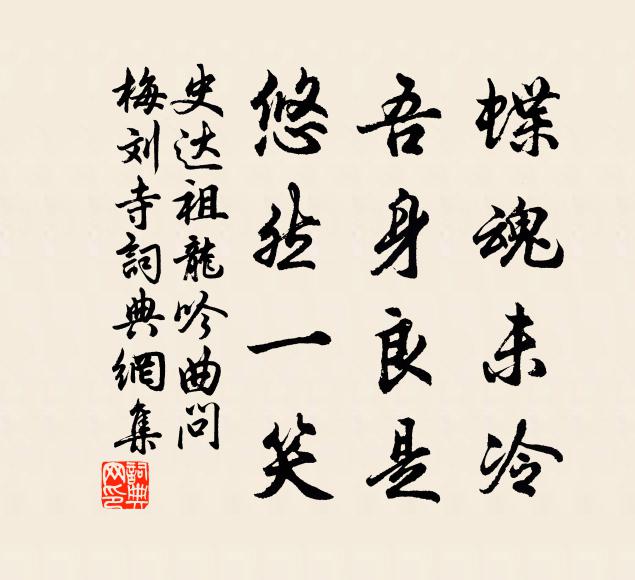 蝶魂未冷
吾身良是
悠然一笑
史达祖龍吟曲問
梅刘寺詞典網集
詞典网印